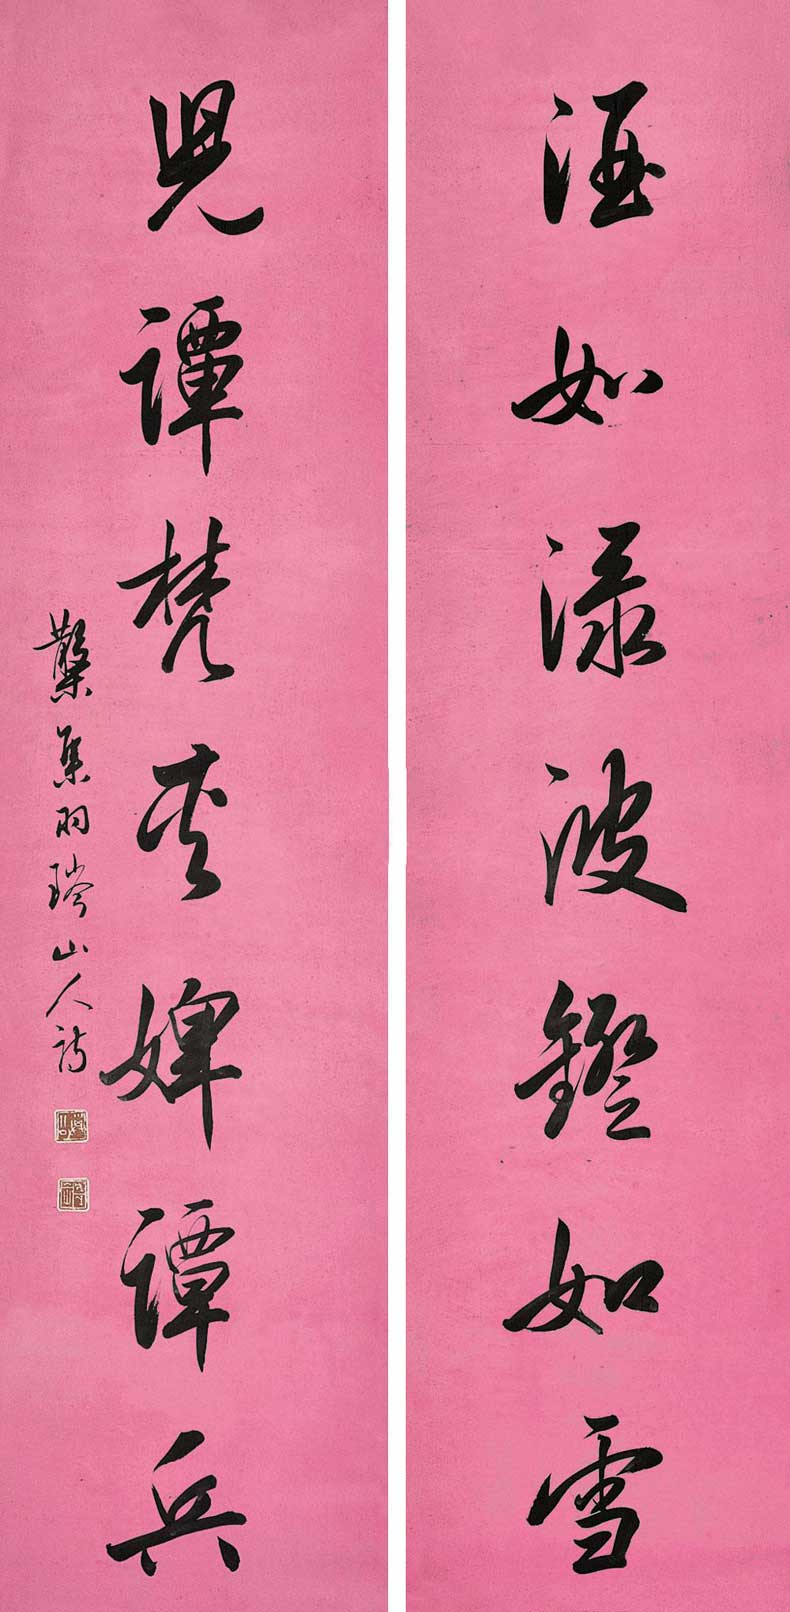 酒如渌波鐙如雪
兒譚梵夾婢譚兵
集羽琌山人詩